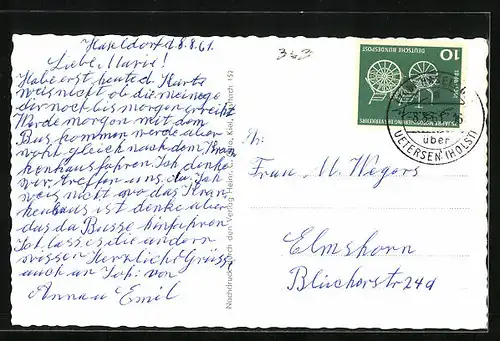 Haseldorf d. 8.8.61.
Liebe Marie!
Habe erst heute d. Karte
weis nicht ob die meinege
dir noch bis morgen erreicht
Werde morgen mit dem
Bus kommen werde aber
wohl gleich nach dem Kran
kenhaus fahren. Ich denke
wir treffen uns da. Ich
weis nicht wo das Kran
kenhaus ist denke aber
das da Busse hinfahren
Ich lass es die andern
wissen Herrlicht Grüsse
auch an Joh: von
Anna u Emil
Nachdruck durch den Verlag Heinr. Kiel 152
363
10
DEUTSCHE BUNDESPOST
über
UETERSEN (HOLST)
An:
Frau M. Wegers
Elmshorn
Blücherstr 24d